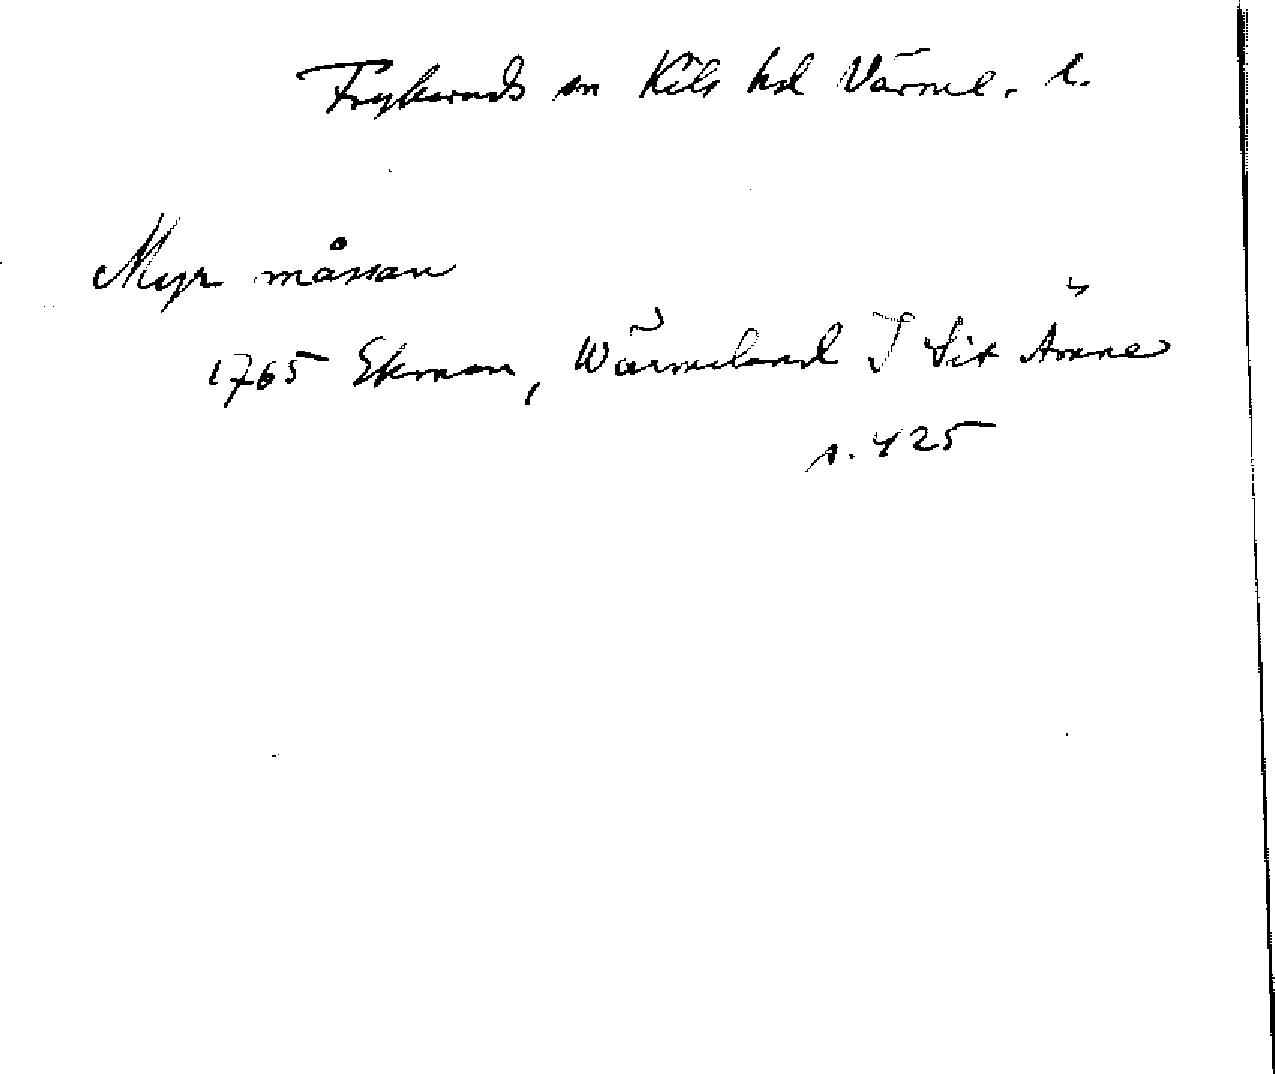 Frykeruds sn Kils hd Värml. l.
Myr måssan
1765 Ekman, Wärmeland I Sit Ämne
s. 425